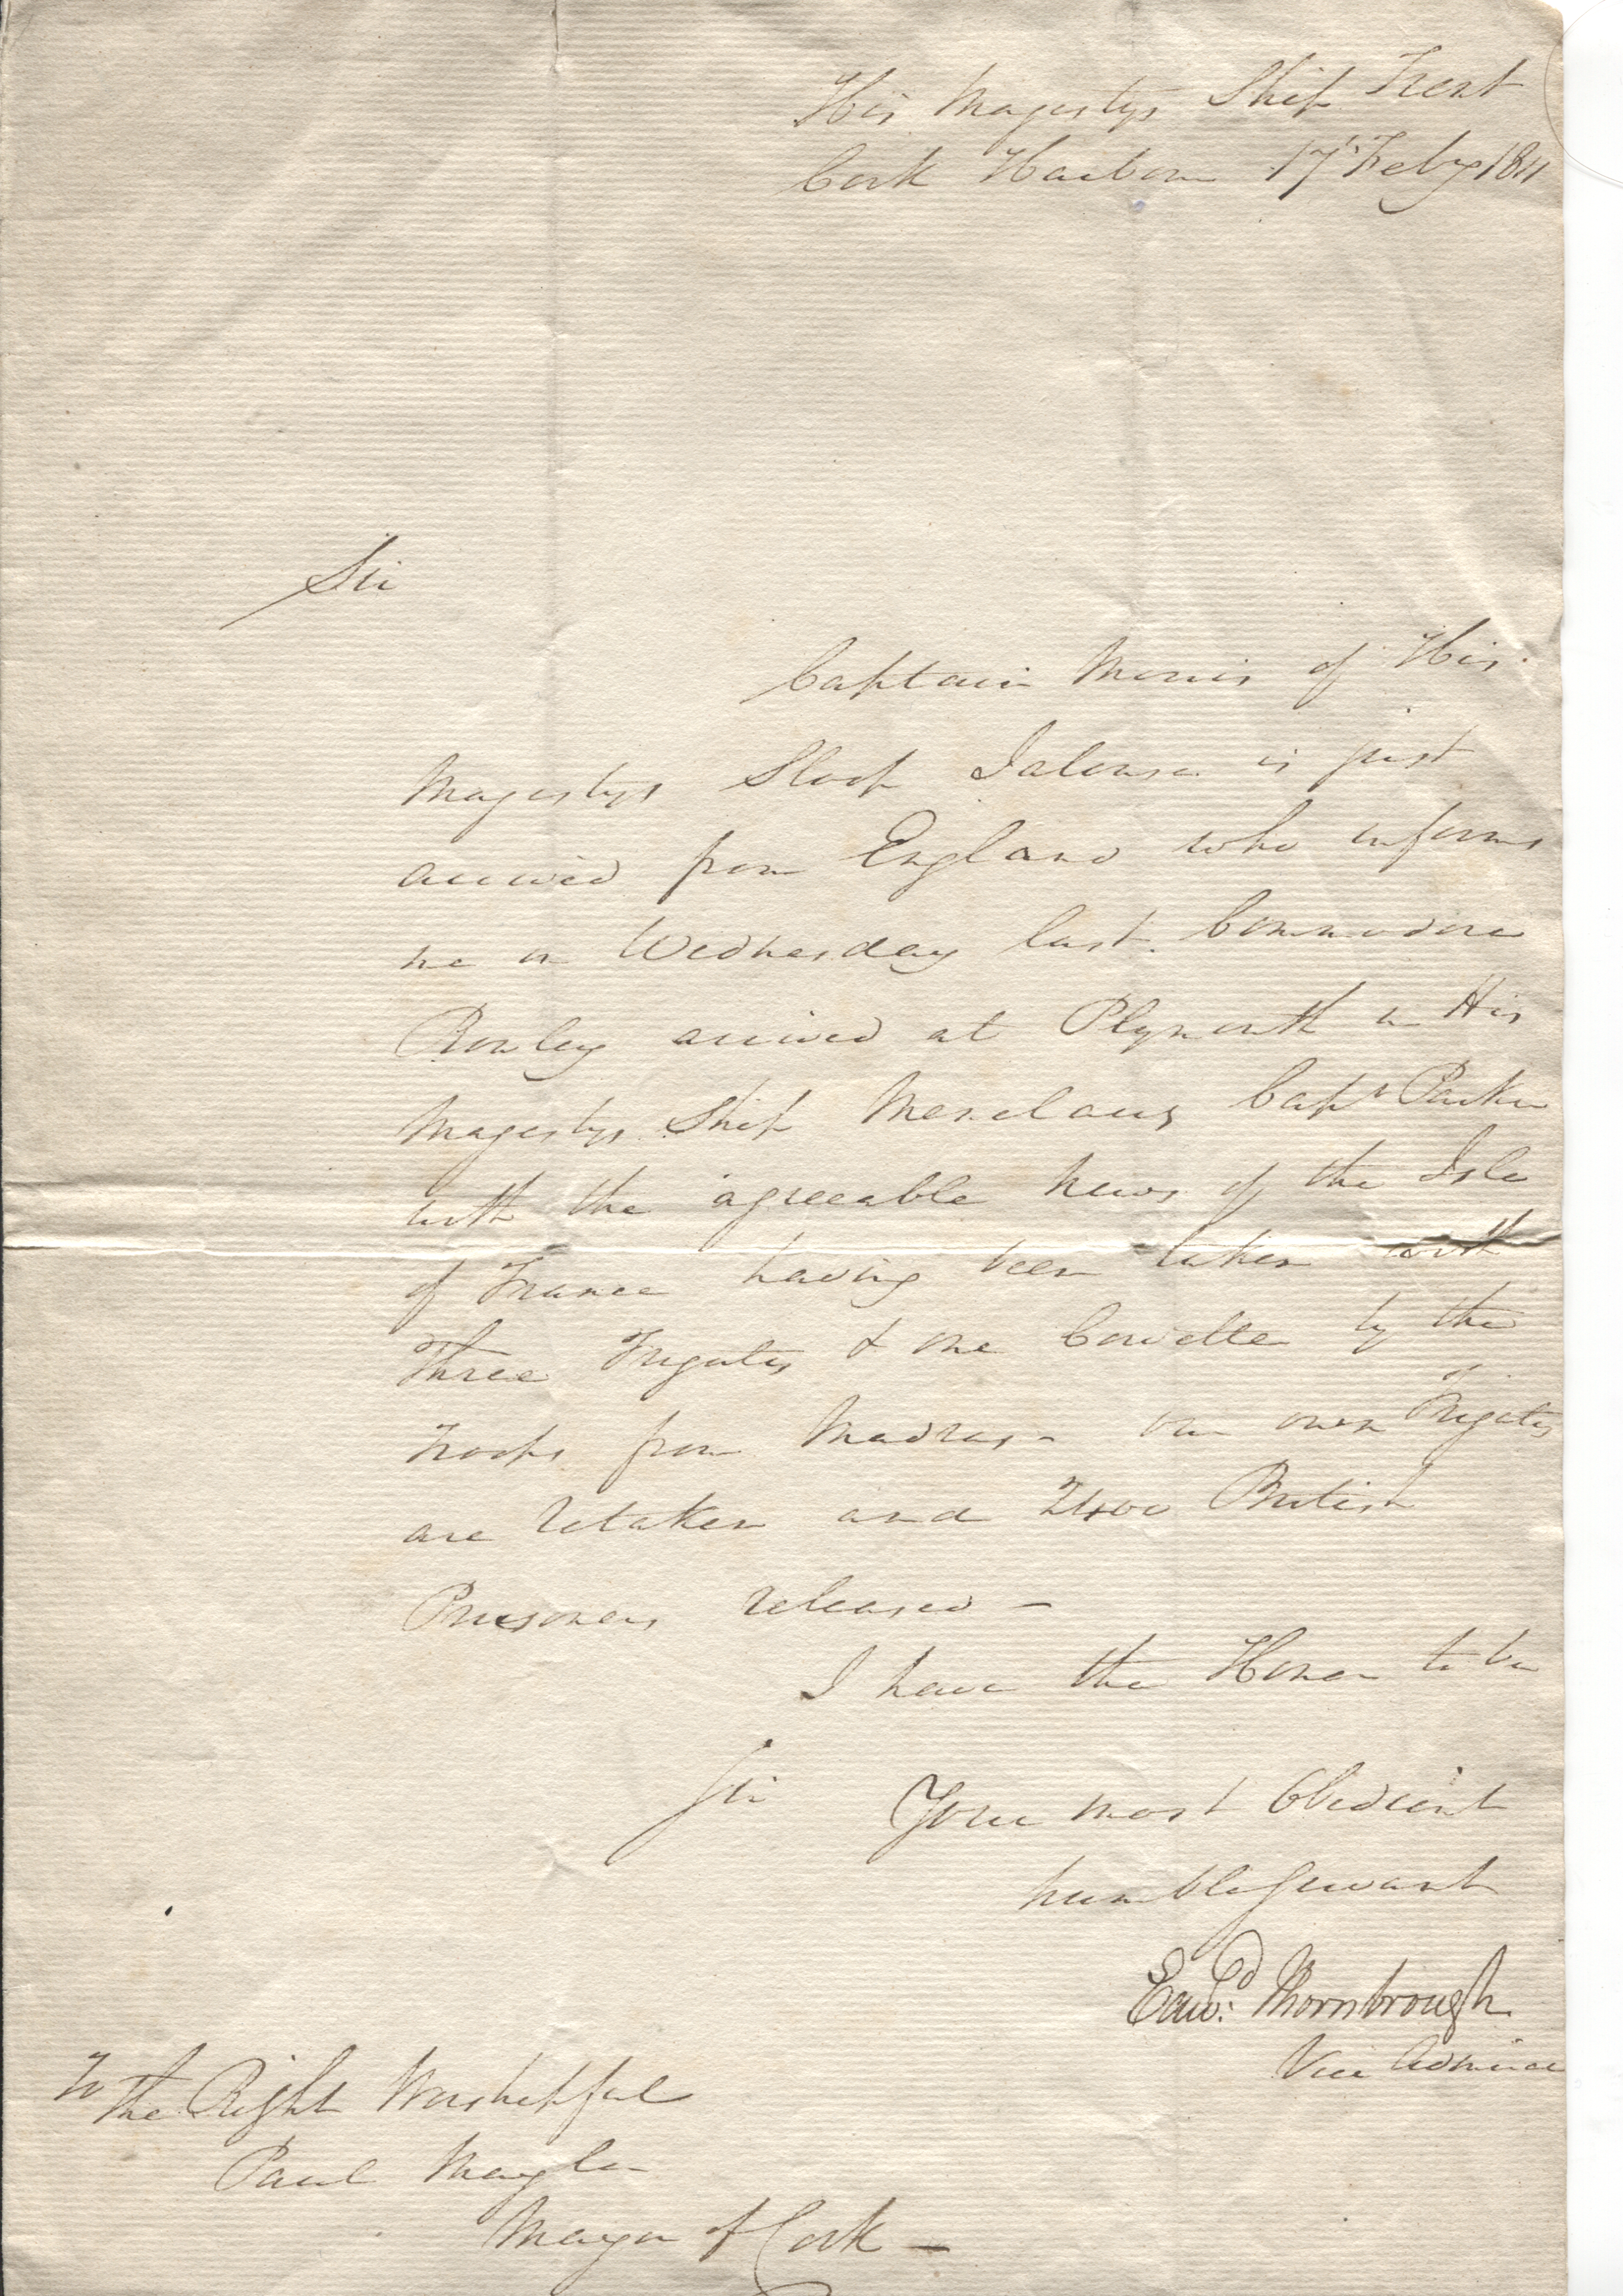 His Magestys Ship Trent
Cork Harbour 17 Feby 1811
Sir
Captain Morris of His
Magestys Sloop Jalouse is just
arrived from England who informs
me on Wednesday last Commodore
Rowley arrived at Plymouth in His
Magestys Ship Menelaus Capt Parker
with the agreeable News of the Isle
of France having been taken with
Three Frigates & one Corvette by the
Troops from Madras - our own Frigates
are retaken and 2400 British
Prisoners released -
I have the Honor to be
Sir Your most Obedient
humble Servant
Edwd: Thornbrough
Vice Admiral
To
The Right Worshipful
Paul Maylor
Mayor of Cork -